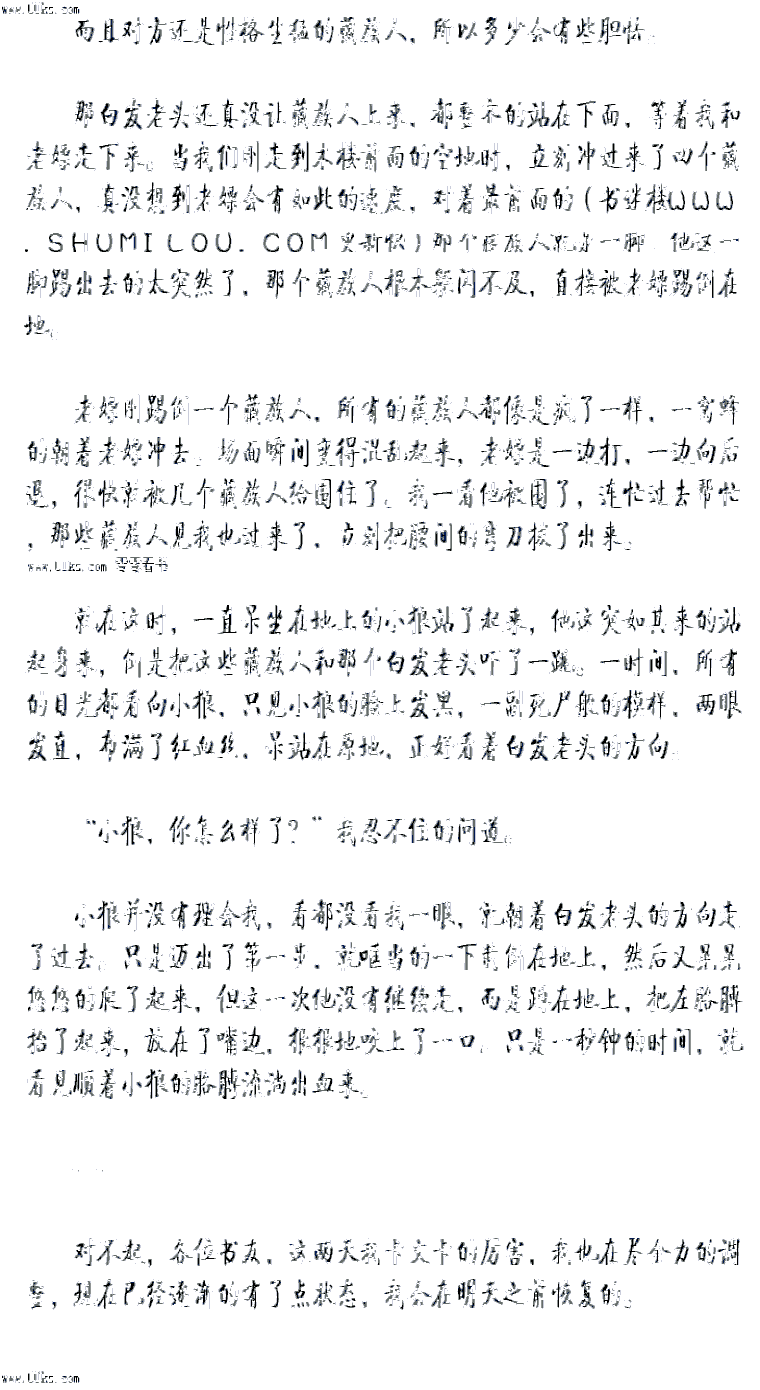 www.00ks.com
而且对方还是性格生猛的藏族人，所以多少会有些胆怯。
那白发老头还真没让藏族人上来，都整齐的站在下面，等着我和
老嫖走下来。当我们刚走到木楼前面的空地时，立刻冲过来了四个藏
族人，真没想到老嫖会有如此的速度，对着最前面的（书谜楼ＷＷＷ
．ＳＨＵＭＩＬＯＵ．ＣＯＭ更新快）那个藏族人就是一脚，他这一
脚踢出去的太突然了，那个藏族人根本躲闪不及，直接被老嫖踢倒在
地。
老嫖刚踢倒一个藏族人，所有的藏族人都像是疯了一样，一窝蜂
的朝着老嫖冲去。场面瞬间变得混乱起来，老嫖是一边打，一边向后
退，很快就被几个藏族人给围住了。我一看他被围了，连忙过去帮忙
，那些藏族人见我也过来了，立刻把腰间的弯刀拔了出来。
www.00ks.com 零零看书
就在这时，一直呆坐在地上的小狼站了起来，他这突如其来的站
起身来，倒是把这些藏族人和那个白发老头吓了一跳。一时间，所有
的目光都看向小狼，只见小狼的脸上发黑，一副死尸般的模样，两眼
发直，布满了红血丝，呆站在原地，正好看着白发老头的方向。
“小狼，你怎么样了？”我忍不住的问道。
小狼并没有理会我，看都没看我一眼，就朝着白发老头的方向走
了过去。只是迈出了第一步，就哐当的一下栽倒在地上，然后又晃晃
悠悠的爬了起来，但这一次他没有继续走，而是蹲在地上，把左胳膊
抬了起来，放在了嘴边，狠狠地咬上了一口。只是一秒钟的时间，就
看见顺着小狼的胳膊流淌出血来。
……
对不起，各位书友，这两天我卡文卡的厉害，我也在尽全力的调
整，现在已经逐渐的有了点状态，我会在明天之前恢复的。
www.00ks.com